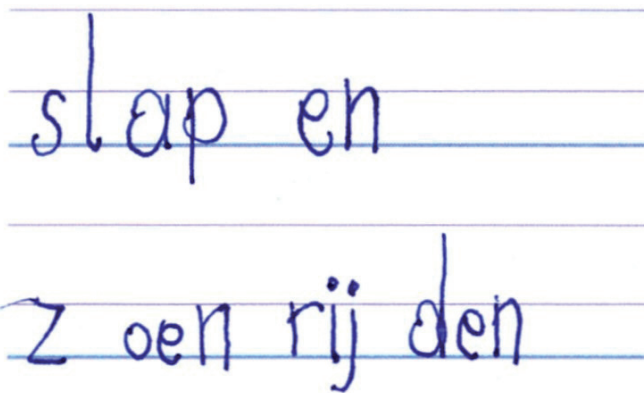 slap en
z oen rij den